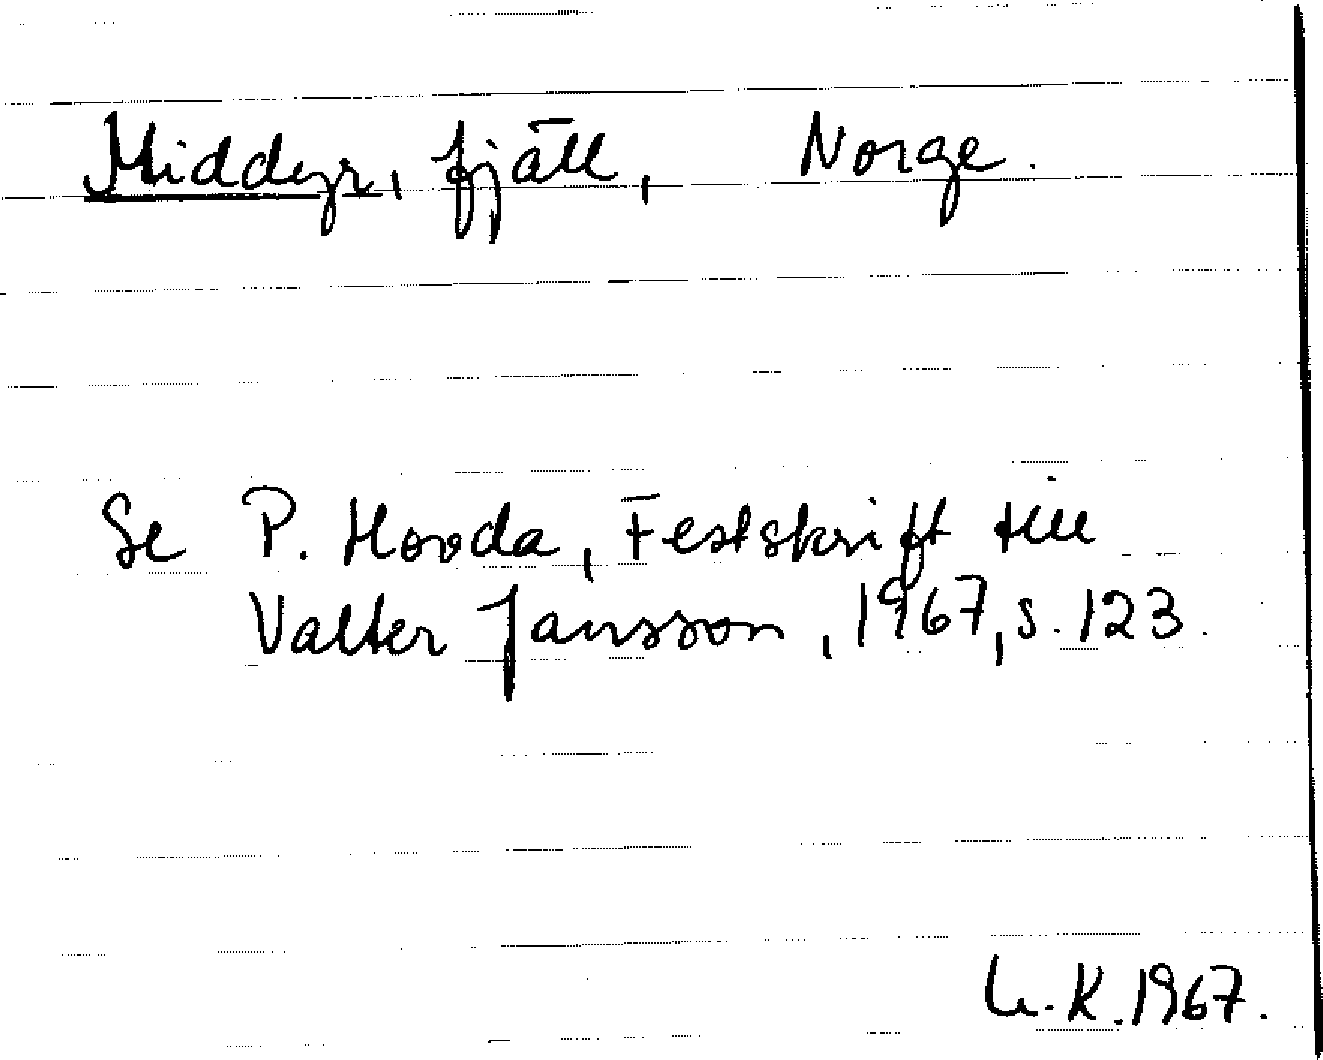 Middyr, fjäll, Norge.
Se P. Hovda, Festskrift till
Valter Jansson, 1967, s. 123.
L.K. 1967.